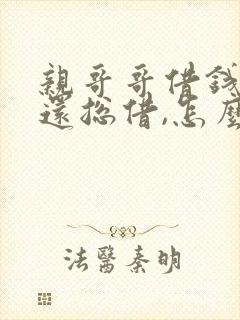 親哥哥借錢
還總借,怎麼
法醫秦明